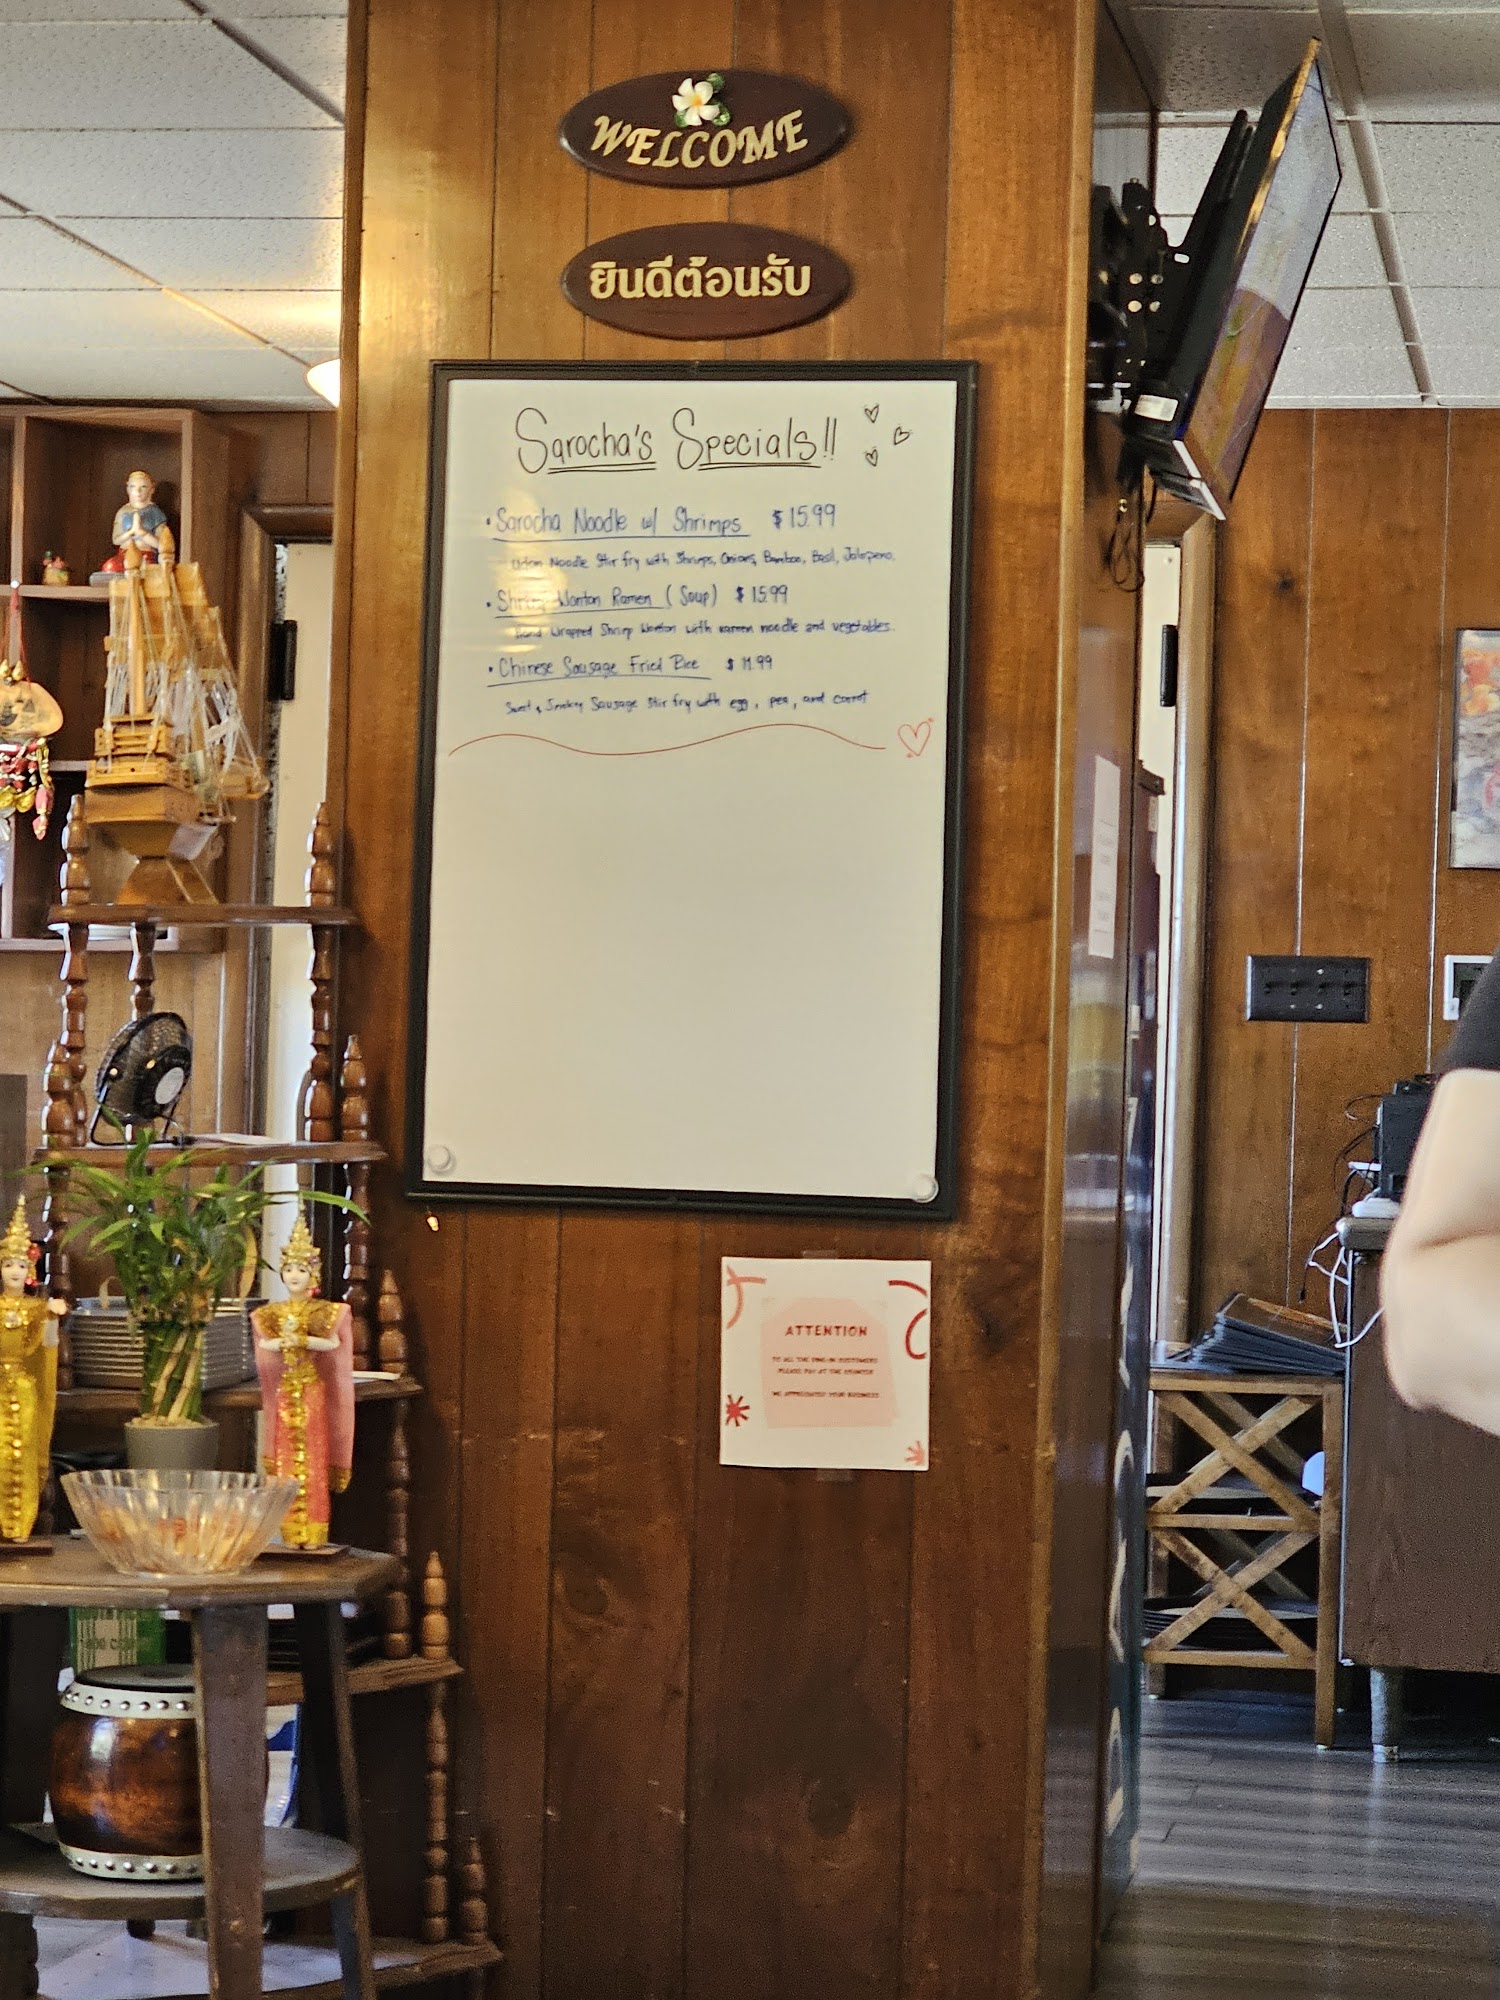 WELCOME
ยินดีต้อนรับ
Sarocha's Specials!!
• Sarocha Noodle w/ Shrimps $15.99
Udon Noodle Stir fry with Shrimps, Onions, Bamboo, Basil, Jalapeno.
• Shrimp Wonton Ramen (Soup) $15.99
Hand Wrapped Shrimp Wonton with ramen noodle and vegetables.
• Chinese Sausage Fried Rice $11.99
Sweet & Smokey Sausage Stir fry with egg, pea, and carrot
ATTENTION
TO ALL THE DINE-IN CUSTOMERS
PLEASE PAY AT THE COUNTER
WE APPRECIATED YOUR BUSINESS